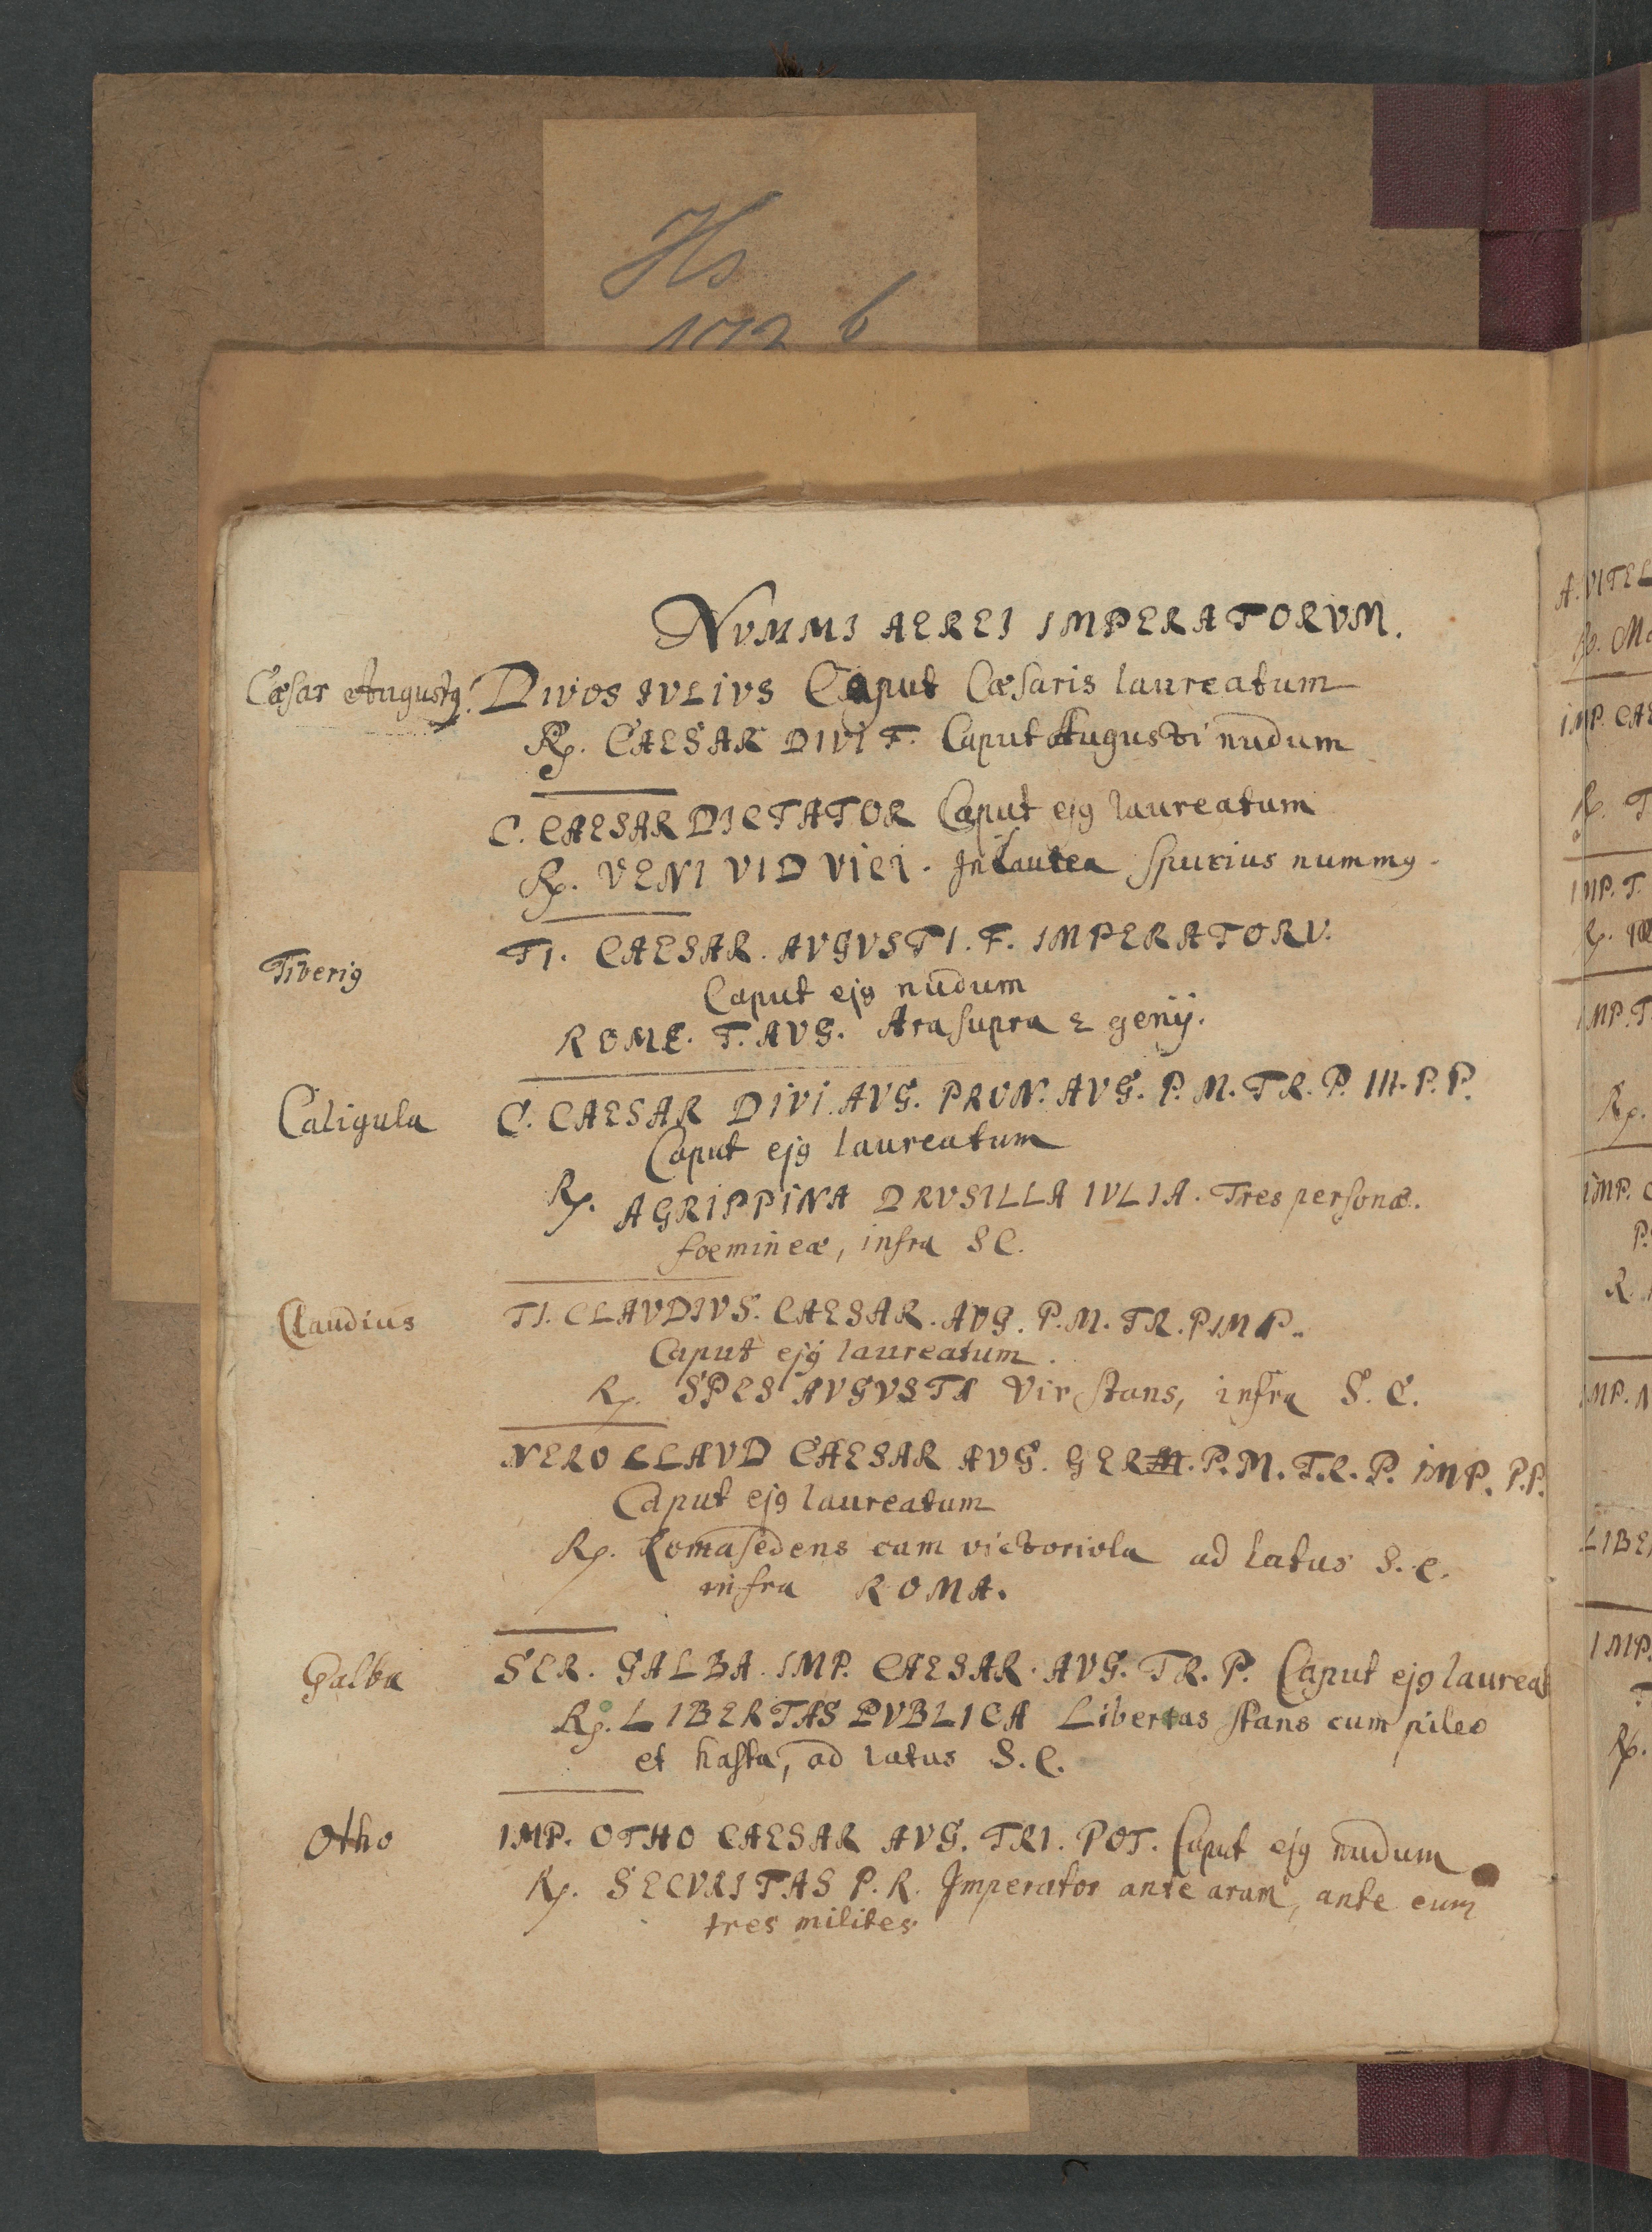 Hs
172 b
NVMMI AEREI IMPERATORVM.
Cæsar Augustꝰ. DIVOS IVLIVS Caput Cæsaris laureatum
℞. CAESAR DIVI F. Caput Augusti nudum
C. CAESAR DICTATOR Caput ejꝰ laureatum
℞. VENI VID VICI. In laurea spurius nummꝰ.
Tiberiꝰ TI. CAESAR. AVGVSTI. F. IMPERATORV.
Caput ejꝰ nudum
ROME. T. AVG. Ara supra 2 genij.
Caligula C. CAESAR DIVI. AVG. PRON. AVG. P. M. TR. P. III. P. P.
Caput ejꝰ laureatum
℞. AGRIPPINA DRVSILLA IVLIA. Tres personæ.
foemineæ, infra SC.
Claudius TI. CLAVDIVS. CAESAR. AVG. P. M. TR. P IMP.
Caput ejꝰ laureatum.
℞. SPES AVGVSTA Vir stans, infra S. C.
NERO CLAVD CAESAR AVG. GER. P. M. TR. P. IMP. P.P.
Caput ejꝰ laureatum
℞. Roma sedens cum victoriola ad latus S. C.
infra ROMA.
Galba SER. GALBA. IMP. CAESAR. AVG. TR. P. Caput ejꝰ laureat
℞. LIBERTAS PVBLICA Libertas stans cum pileo
et hasta, ad latus S. C.
Otho IMP. OTHO CAESAR AVG. TRI. POT. Caput ejꝰ nudum
℞. SECVRITAS P. R. Imperator ante aram, ante eum
tres milites
A. VITEL
℞. Ma
IMP. CAE
℞. T
IMP. T.
℞.
IMP. T
℞.
IMP. C
P.
R.
IMP. N
LIBE
IMP.
T
℞.